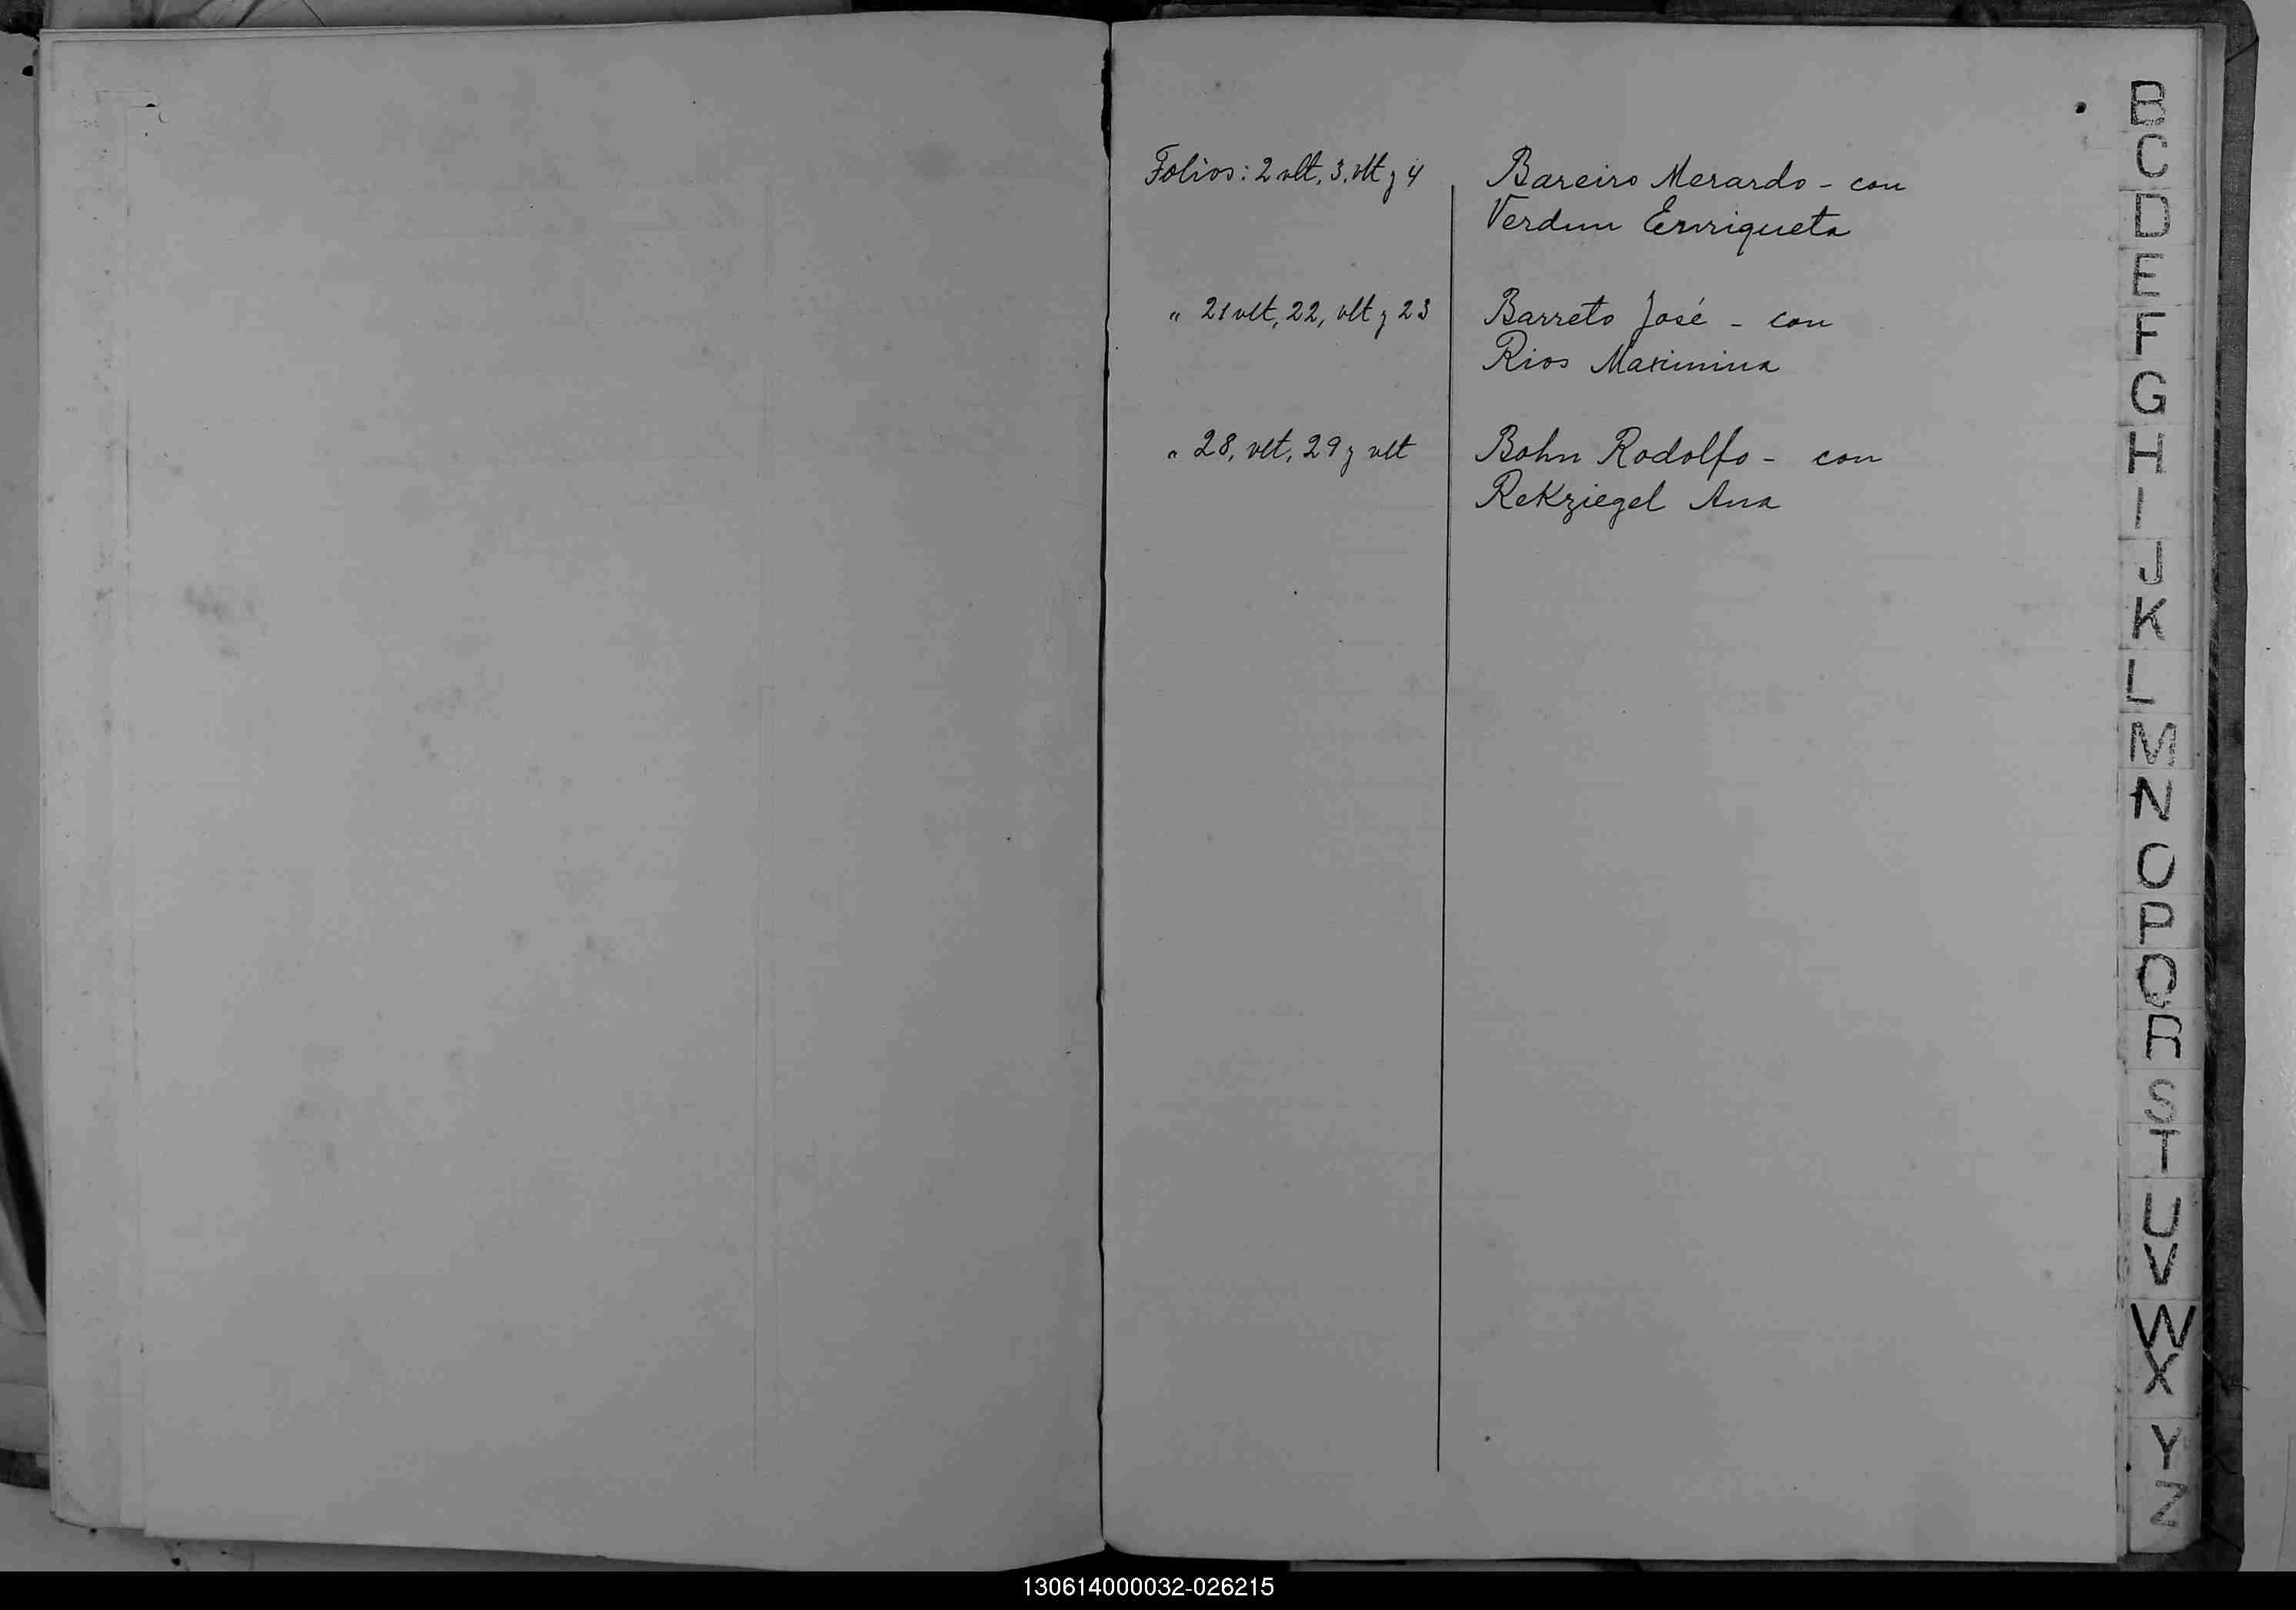 Folios: 2 vlt, 3, vlt y 4 Bareiro Merardo - con
Verdun Enrriqueta
" 21 vlt, 22, vlt y 23 Barreto José - con
Rios Maximina
" 28, vlt, 29 y vlt Bohn Rodolfo - con
ReKziegel Ana
B
C
D
E
F
G
H
I
J
K
L
M
N
O
P
Q
R
S
T
U
V
W
X
Y
Z
130614000032-026215